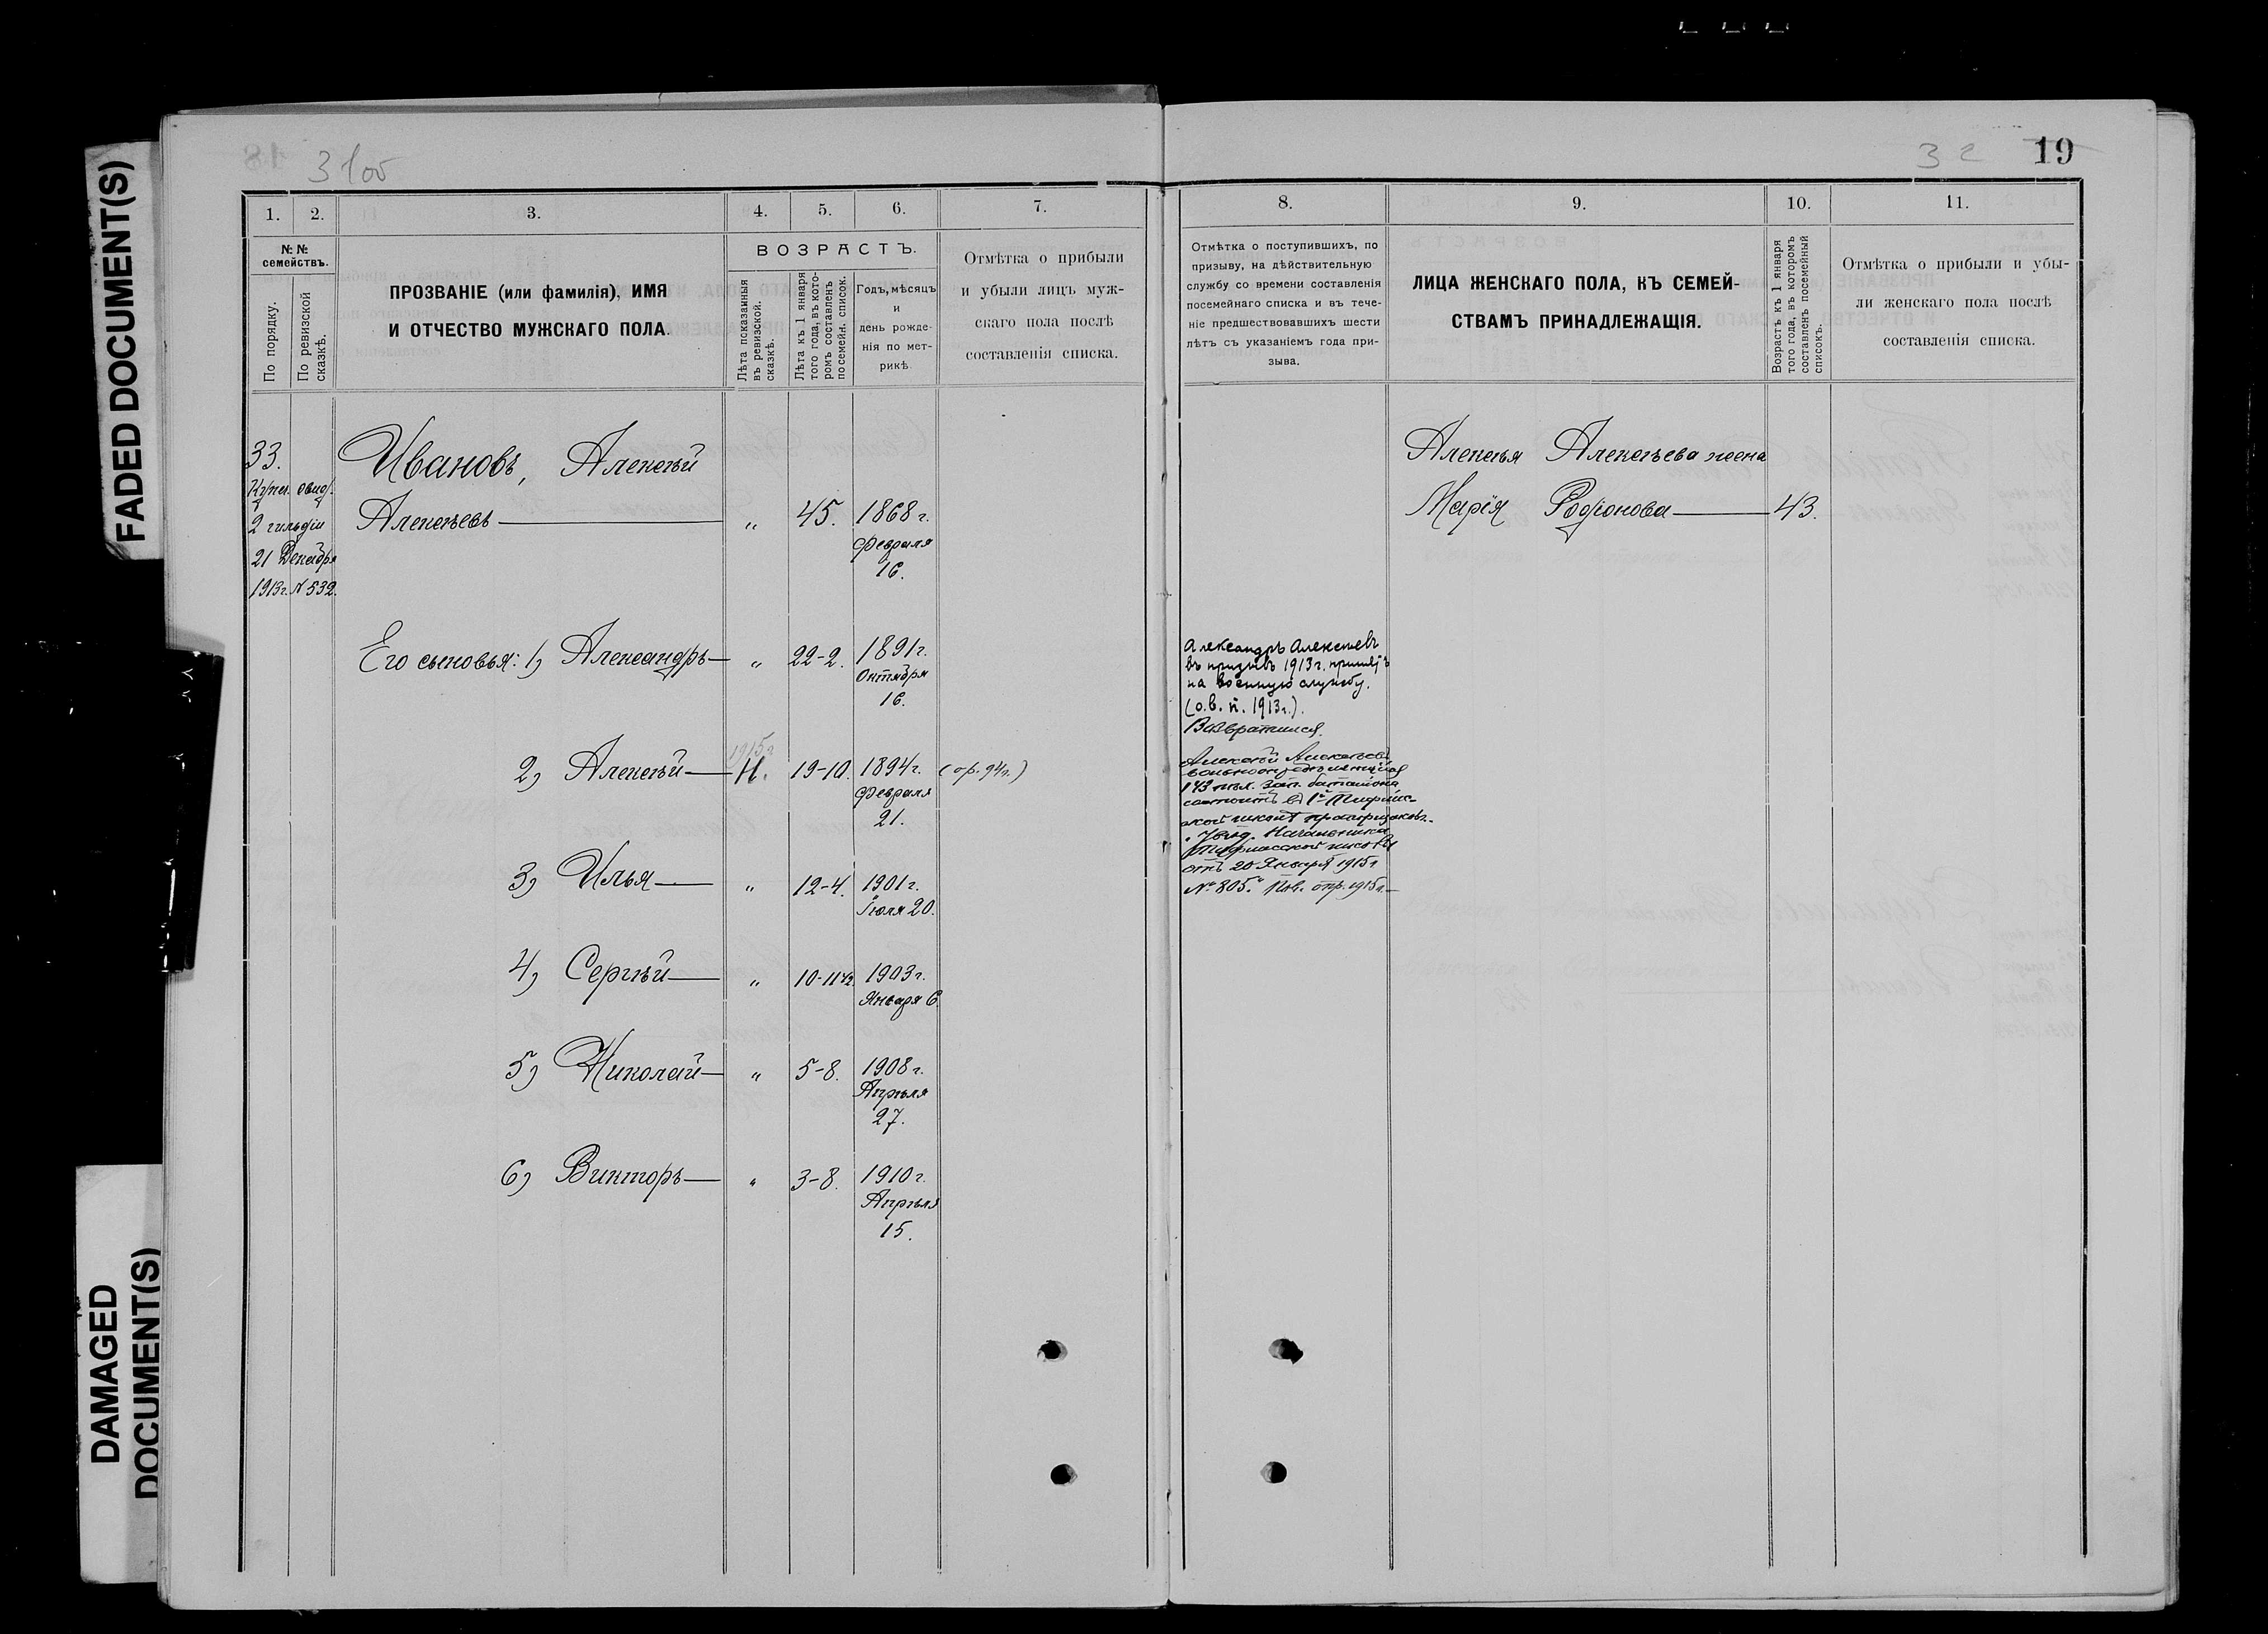 FADED DOCUMENT(S)
DAMAGED
DOCUMENT(S)
3 1оо
32 19
1. 2. 3. 4. 5. 6. 7.
№ №
семействъ.
По порядку.
По ревизской
сказкѣ.
ПРОЗВАНІЕ (или фамилія), ИМЯ
И ОТЧЕСТВО МУЖСКАГО ПОЛА.
ВОЗРАСТЪ.
Лѣта показанныя
въ ревизской.
сказкѣ.
Лѣта къ 1 января
того года, въ кото-
ромъ составленъ
посемейн. список.
Годъ, мѣсяцъ
и
день рожде-
нія по мет-
рикѣ.
Отмѣтка о прибыли
и убыли лицъ муж-
скаго пола послѣ
составленія списка.
33.
Купеч. свид.
2 гильдіи
21 Декабря
1913г. N 532.
Ивановъ, Алексѣй
Алексѣевъ — „ 45. 1868 г.
Февраля
16.
Его сыновья: 1) Александръ — „ 22-2. 1891г.
Октября
16.
1915г
2) Алексѣй — Н. 19-10. 1894г. (ор. 94г.)
Февраля
21.
3) Илья — „ 12-4. 1901г.
Іюля 20.
4) Сергѣй — „ 10-11½ 1903г.
Января 6.
5) Николай — „ 5-8. 1908г.
Апрѣля
27.
6) Викторъ — „ 3-8. 1910г.
Апрѣля
15.
8. 9. 10. 11.
Отмѣтка о поступившихъ, по
призыву, на дѣйствительную
службу со времени составленія
посемейнаго списка и въ тече-
ніе предшествовавшихъ шести
лѣтъ съ указаніемъ года при-
зыва.
ЛИЦА ЖЕНСКАГО ПОЛА, КЪ СЕМЕЙ-
СТВАМЪ ПРИНАДЛЕЖАЩІЯ.
Возрастъ къ 1 января
того года, въ которомъ
составленъ посемейный
списокъ.
Отмѣтка о прибыли и убы-
ли женскаго пола послѣ
составленія списка.
Алексѣя Алексѣева жена
Марія Родіонова — 43.
Александръ Алексѣевъ
въ призывъ 1913г. принятъ
на военную службу.
(о.в.п. 1913г.).
Возвратился.
Алексѣй Алексѣевъ
вольноопредѣляющійся
143 пѣх. зап. баталіона
состоитъ въ 1й Тифлис-
ской школѣ прапорщиковъ.
Увѣд. Начальника
Тифлисской школы
отъ 20 Января 1915г
№ 805.